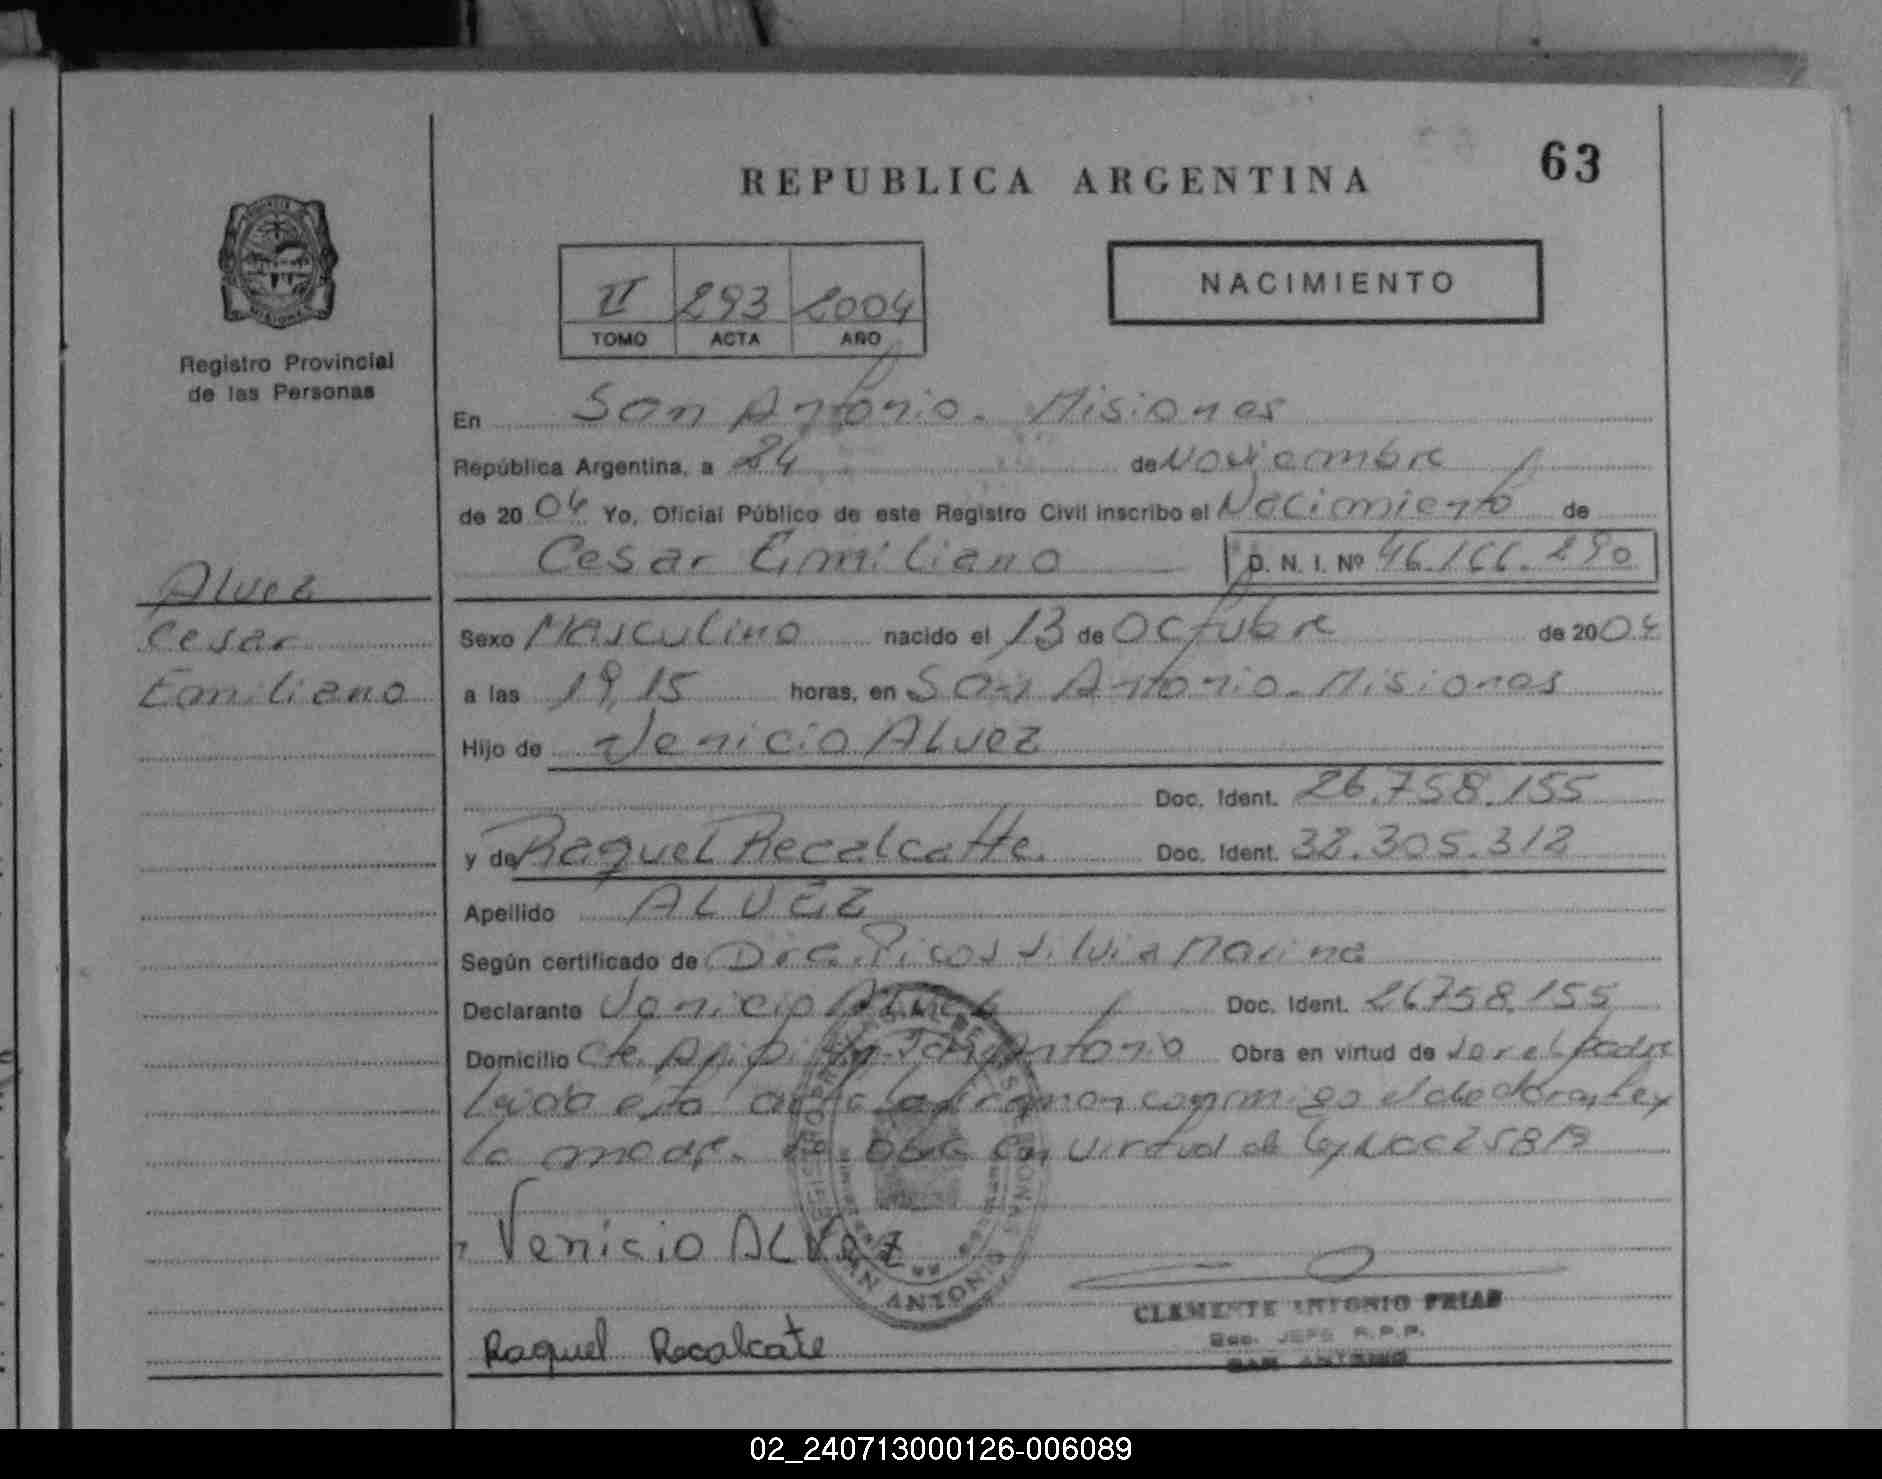 63
REPUBLICA ARGENTINA
NACIMIENTO
II 293 2004
TOMO ACTA AÑO
Registro Provincial
de las Personas
En San Antonio. Misiones
República Argentina, a 24 de Noviembre
de 2004 Yo, Oficial Público de este Registro Civil inscribo el Nacimiento de
Cesar Emiliano D. N. I. Nº 46.166.290
Alvez
Cesar
Emiliano
Sexo Masculino nacido el 13 de Octubre de 2004
a las 19,15 horas, en San Antonio. Misiones
Hijo de Venicio ALvez
Doc. Ident. 26.758.155
y de Raquel Recalcatte. Doc. Ident. 32.305.312
Apellido ALVEZ
Según certificado de Dra. Picos Silvia Marina
Declarante Venicio Alvez Doc. Ident. 26758.155
Domicilio San Antonio Obra en virtud de ser el padre
Leida esta acta la firman conmigo el declarante y
la madre. Se obra en virtud de Ley 25819
Venicio ALVez
CLEMENTE ANTONIO FRIAS
JEFE R.P.P.
SAN ANTONIO
Raquel Recalcate
02_240713000126-006089